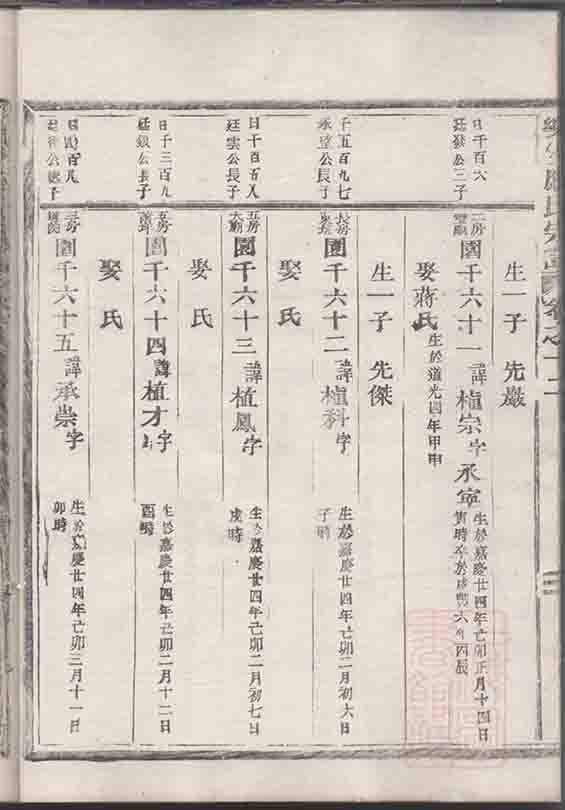 生一子 先巖
日千百六
廷發公三子
二房
園千六十一諱植宗字承寧
生於嘉慶廿四年己卯正月十四日
寅時卒於咸豐六年四辰
娶蔣氏
生於道光四年甲申
生一子 先傑
千五百九七
承登公長子
長房
園千六十二諱植科字
生於嘉慶廿四年己卯二月初六日
子時
娶 氏
日千百百八
廷雲公長子
五房
園千六十三諱植鳳字
生於嘉慶廿四年己卯二月初七日
戌時
娶 氏
日千三百九
廷銀公長子
五房
園千六十四諱植才字
生於嘉慶廿四年己卯二月十二日
酉時
娶 氏
園千六十五諱承崇字
生於嘉慶廿四年己卯三月十一日
卯時